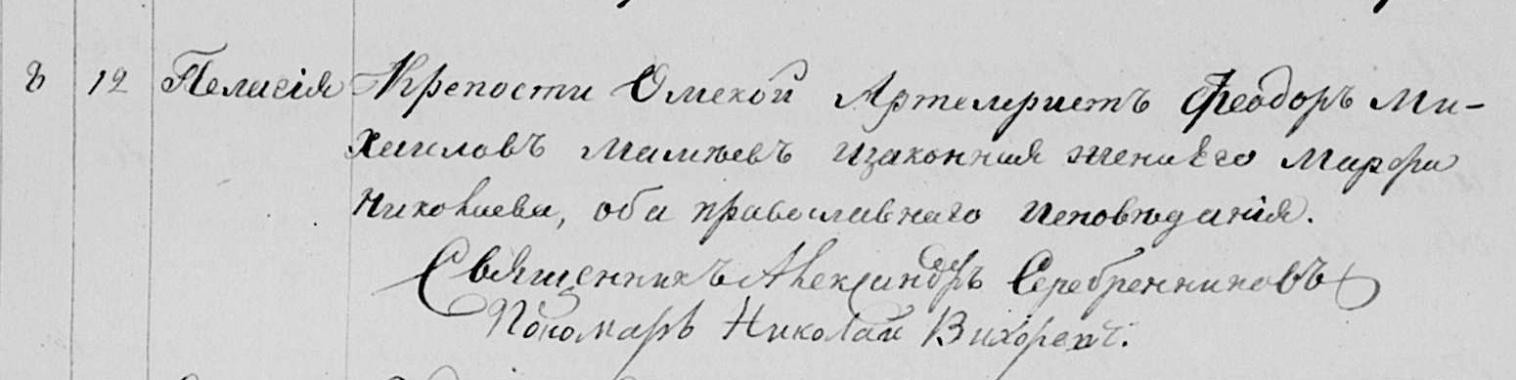 8 12 Пелагія Крепости Омской Артилеристъ Феодоръ Ми-
хаиловъ Мамѣевъ изаконная жена его Марфа
Николаева, оба православнаго исповѣданія.
Священникъ Александръ Серебренниковъ
Пономарь Николай